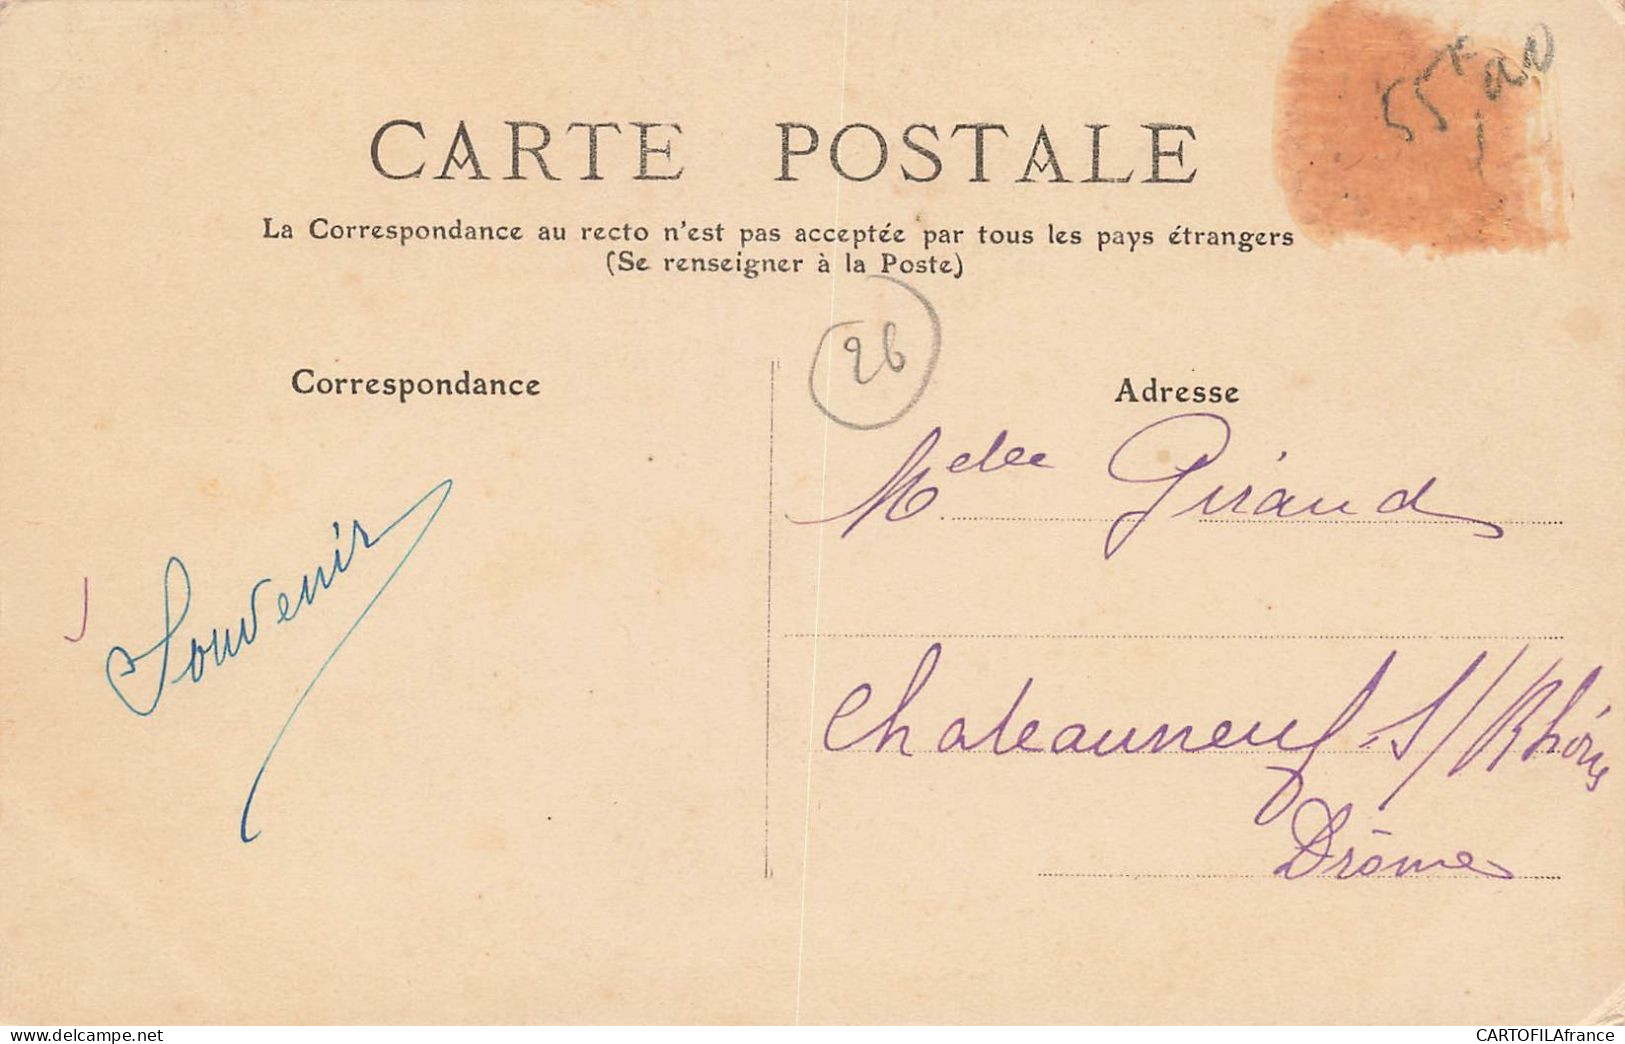 CARTE POSTALE
La Correspondance au recto n'est pas acceptée par tous les pays étrangers
(Se renseigner à la Poste)
26
Correspondance
Souvenir
Adresse
Mdelle Giraud
Chateauneuf S/Rhône
Drôme
www.delcampe.net
CARTOFILAfrance